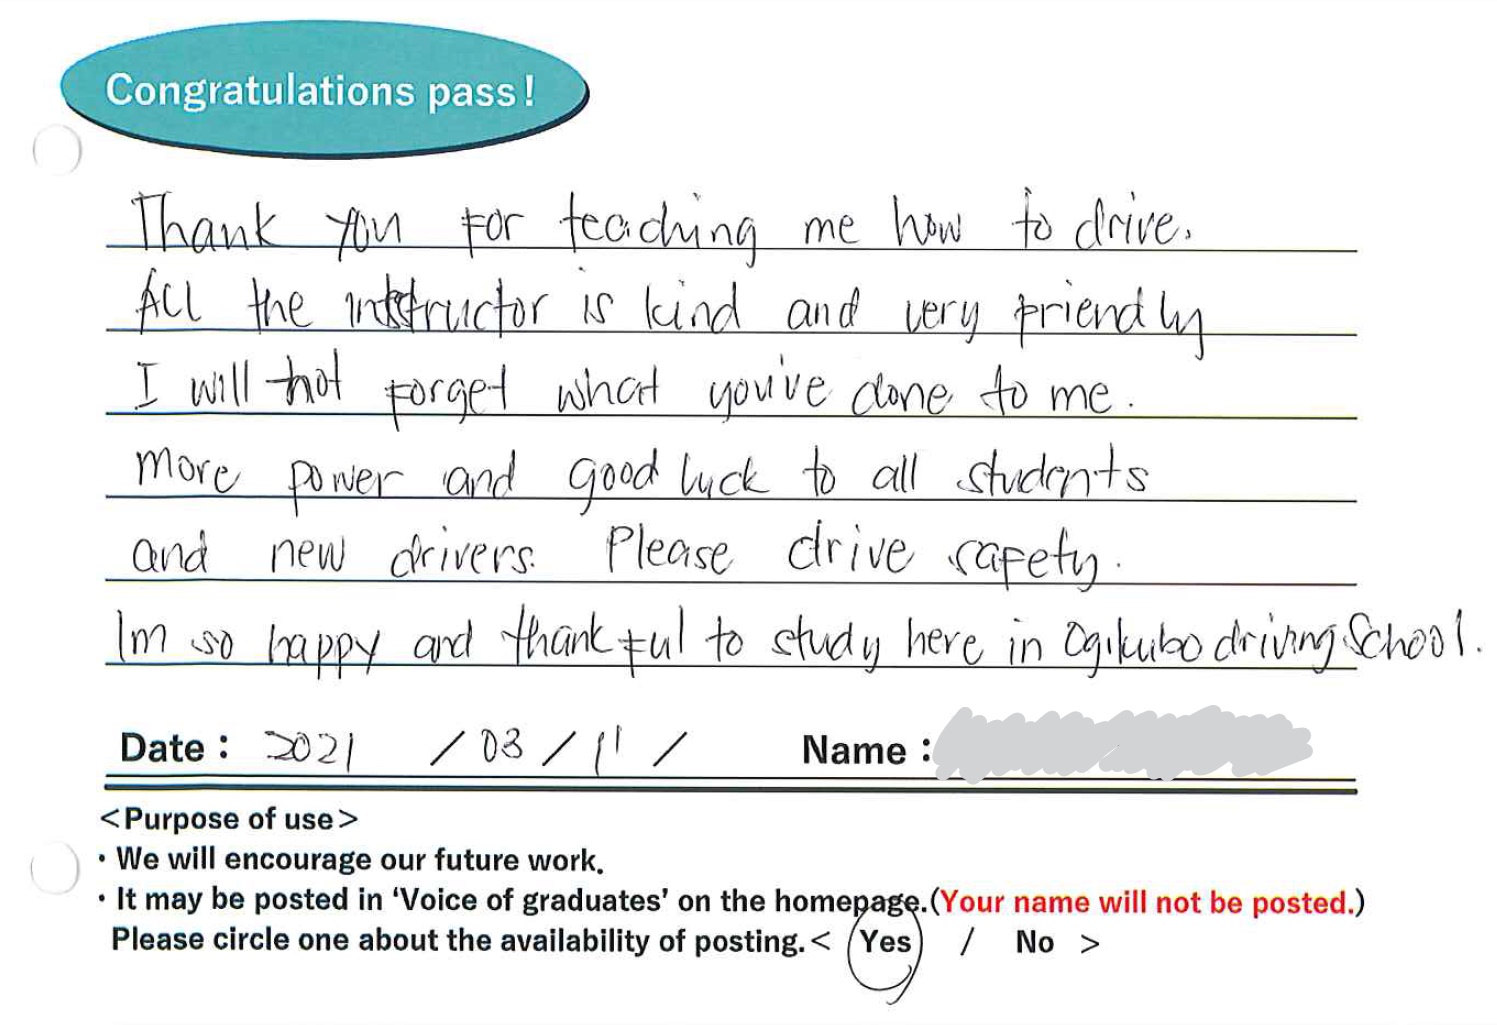 Congratulations pass!
Thank you for teaching me how to drive.
All the intstructor is kind and very friendly
I will not forget what you've done to me.
more power and good luck to all students
and new drivers. Please drive safety.
Im so happy and thankful to study here in Ogikubo driving School.
Date : 2021 / 03 / 11 / Name :
<Purpose of use>
・We will encourage our future work.
・It may be posted in ‘Voice of graduates’ on the homepage.(Your name will not be posted.)
Please circle one about the availability of posting.< Yes / No >